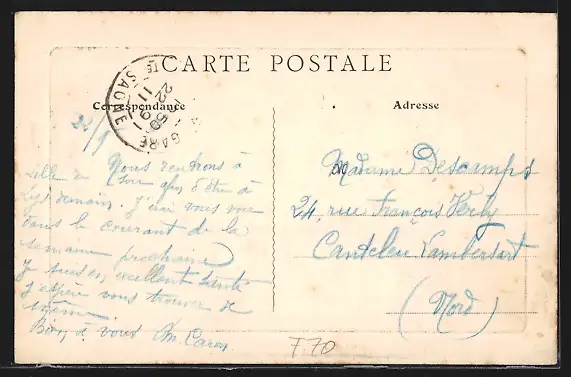 CARTE POSTALE
Correspondance
Adresse
GARE
SAÔNE
22/9
Nous rentrons à
Lille ce soir après être à
Lys demain. J'irai vous voir
dans le courant de la
semaine prochaine
Je suis en excellente santé
j'espère vous trouver de
même.
Bien à vous M. Caron
Madame Descamps
24, rue François
Canteleu Lambersart
(Nord)
F70